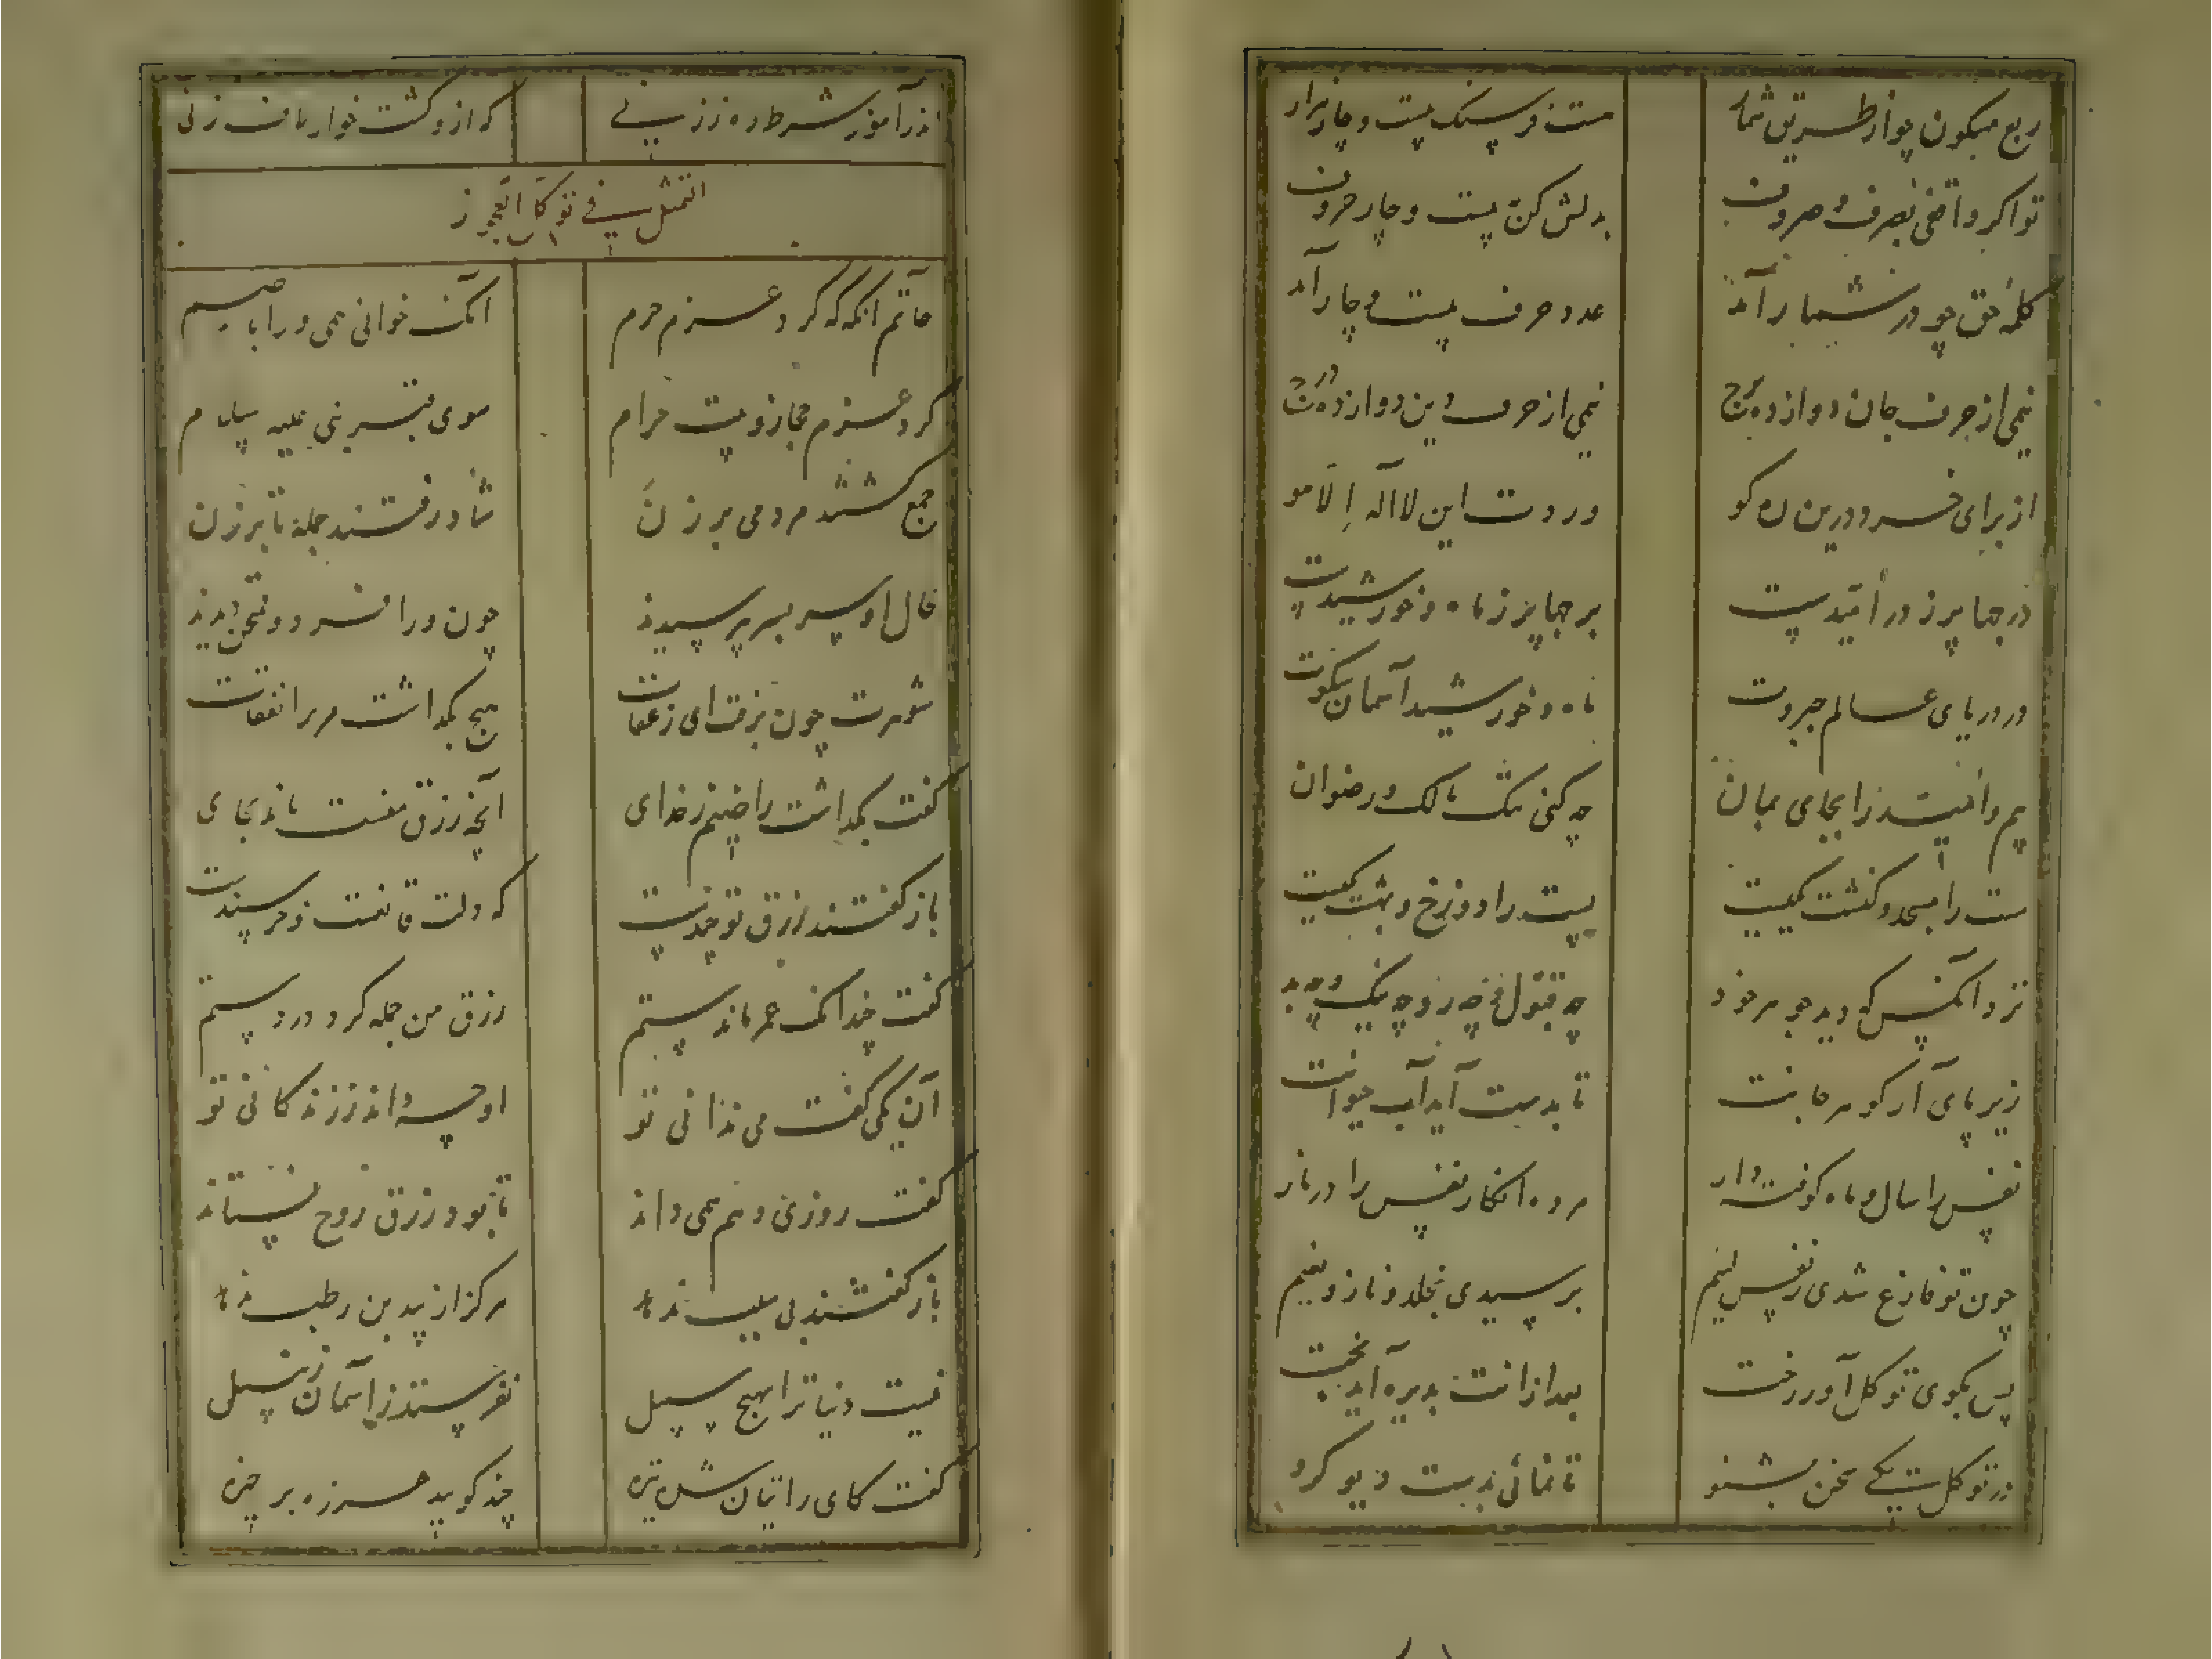 ربع میکون چو از طریق شمار هست فرسنک بیست و چار هزار
تو اکر واقفی بصرف و صروف بدلش کن به بیست و چار حروف
کلمهٔ حق چو در شمار آمد عدد حرف بیست و چار آمد
نیمی از حرف جان دوازده برج نیمی از حرف دین دوازده درج
از برای خرد درین ره کو وردت این لا اله الا هو
درجها پر ز در امیدست برجها پر ز ماه و خورشیدست
در دریای عالم جبروت ماه و خورشید آسمان سکوت
بیم و امید را بجای بمان چه کنی ننک مالک و رضوان
هست را مسجد و کنشت یکیست نیست را دوزخ و بهشت یکیست
نزد آنکس که دید جوهر خود چه قبول و چه رد و چه نیک و چه بد
زیر پای آر کوهر کانت تا بدست آید آب حیوانت
نفس را سال و ماه کوفته دار مرده انکار نفس را در نار
چون تو فارغ شدی ز نفس لئیم برسیدی بخلد و ناز و نعیم
پس بکوی توکل آور رخت بعد از آنت پذیره آید بخت
در توکل یکی سخن بشنو تا نمانی بدست دیو کرو
اندر آموز شرط ره ز زنی که ازو کشت خوار لاف زنی
التمثیل فی توکل العجوز
حاتم انکه که کرد عزم حرم آنک خوانی همی ورا باصم
کرد عزم حجاز و بیت حرام سوی قبر نبی علیه سلام
جمع کشتند مردمی بر زن شاد رفتند جمله تا بر زن
حال او سر بسر بپرسیدند چون ورا فرد و ممتحن دیدند
شوهرت چون برفت ای زعفات هیچ بکذاشت مر ترا نفقات
کفت بکذاشت راضیم ز خدای آنچه رزق منست ماند بجای
باز کفتند رزق تو چندست که دلت قانعست و خرسندست
کفت چندانک عمر ماندستم رزق من جمله کرد در دستم
آن یکی کفت می ندانی تو او چه داند ز زندکانی تو
کفت روزی دهم همی داند تا بود رزق روح نستاند
باز کفتند بی سبب ندهد هرکز از بید بن رطب ندهد
نیست دنیا ترا بهیچ سبیل نفرستدت ز آسمان زنبیل
کفت کای رایتان شده تیره چند کویید هرزه بر خیره